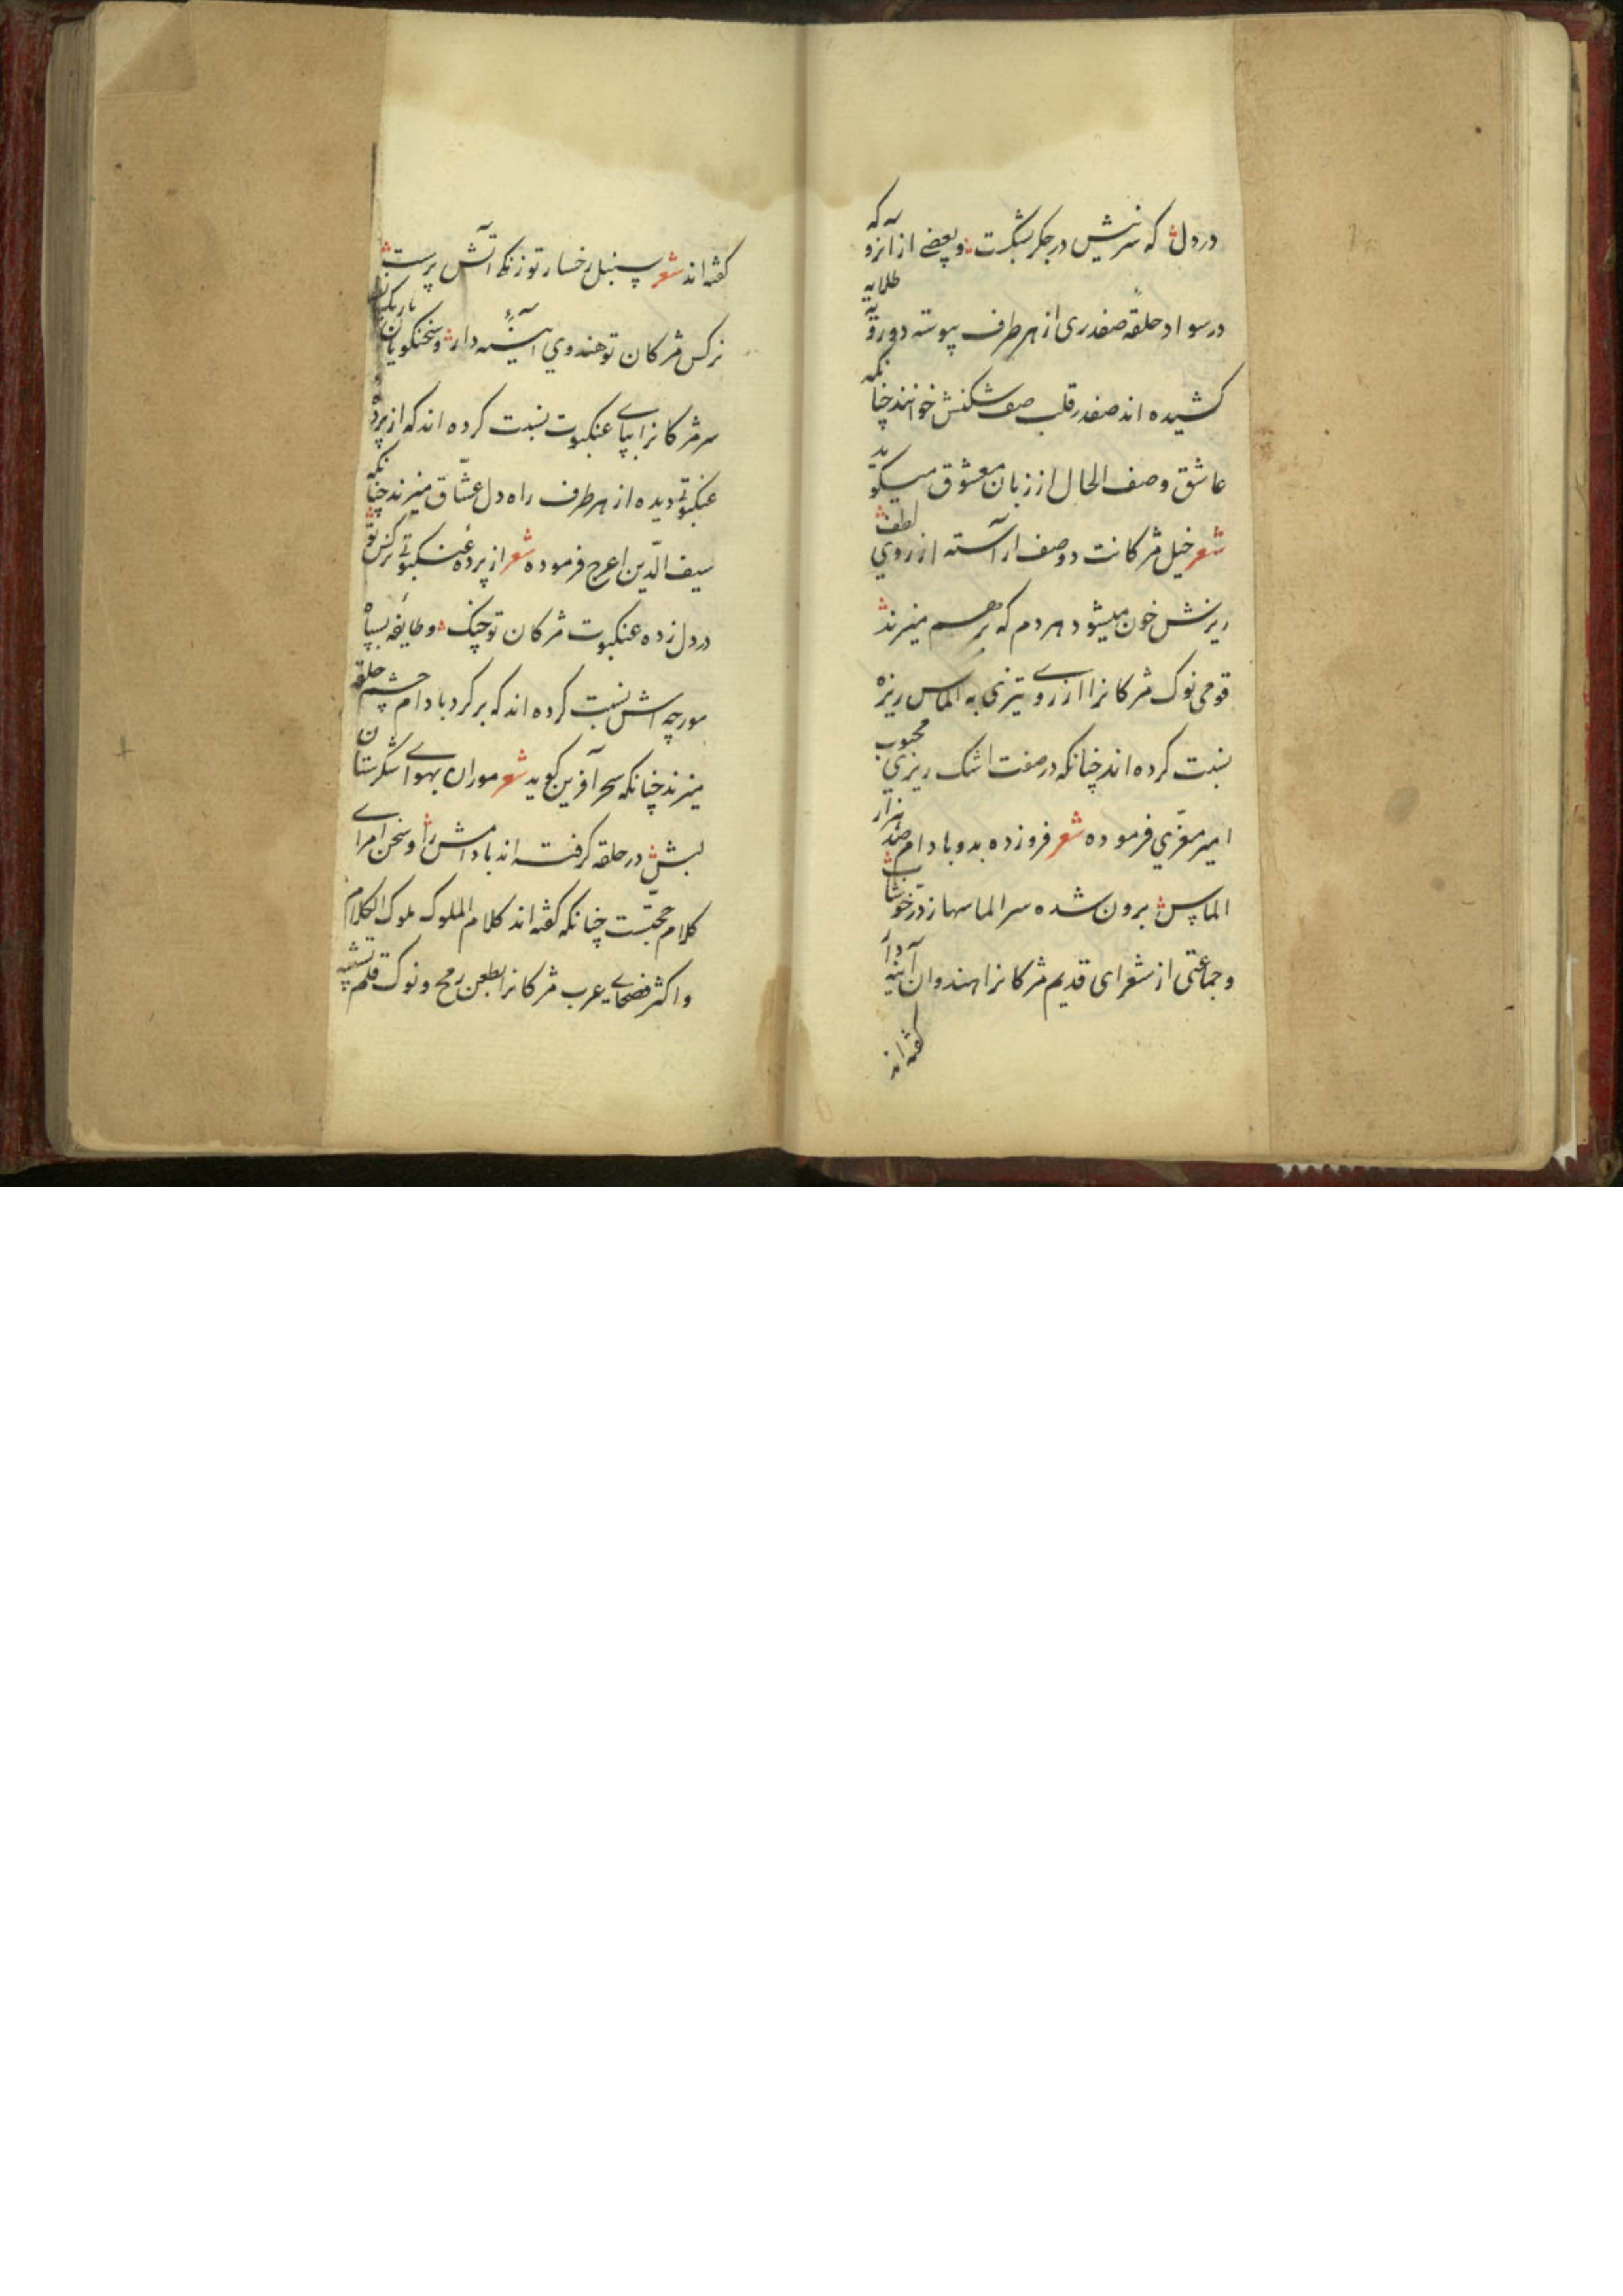 در دل که سر نیش در جگر بشکست و بعضے از آنرو که
در سواد حلقهٔ صفدری از هر طرف پیوسته دو رویه طلایه
کشیده اند صفدر قلب صف شکنش خوانند چنانکه
عاشق وصف الحال از زبان معشوق میگوید
شعر خیل مژکانت دو صف اراسته از روی لطف
ریزش خون میشود هر دم که بر هم میزند
قومی نوک مژکانرا از روے تیزی به الماس ریزه
نسبت کرده اند چنانکه در صفت اشک ریزی محبوب
امیر معزّی فرموده شعر فروزده بدو بادام صد هزار
الماس برون شده سر الماسها ز درّ خوشاب
و جماعتی از شعرای قدیم مژکانرا هندوان آینه دار
کفته اند
کفته اند شعر سنبل رخسار تو زنکے آتش پرست
نرکس مژکان تو هندوي آیینه دار و سخنکویان باریک
سر مژکانرا بپاے عنکبوت نسبت کرده اند که از پردهٔ
عنکبوتے دیده از هر طرف راه دل عشّاق میزند چنانکه
سیف الدّین اعرج فرموده شعر از پردهٔ عنکبوتے نرکس تو
در دل زده عنکبوت مژکان تو چنک و طایفهٔ بسپاه
مورچه اش نسبت کرده اند که بر کرد بادام چشم حلقه
میزند چنانکه سحر آفرین کوید شعر موران بهواے شکرستان
لبش در حلقه کرفته اند بادامش را و سخن امراے
کلام حجّتست چنانکه کفته اند کلام الملوک ملوک الکلام
و اکثر فصحاے عرب مژکانرا بطعن رمح و نوک قلم تشبیه